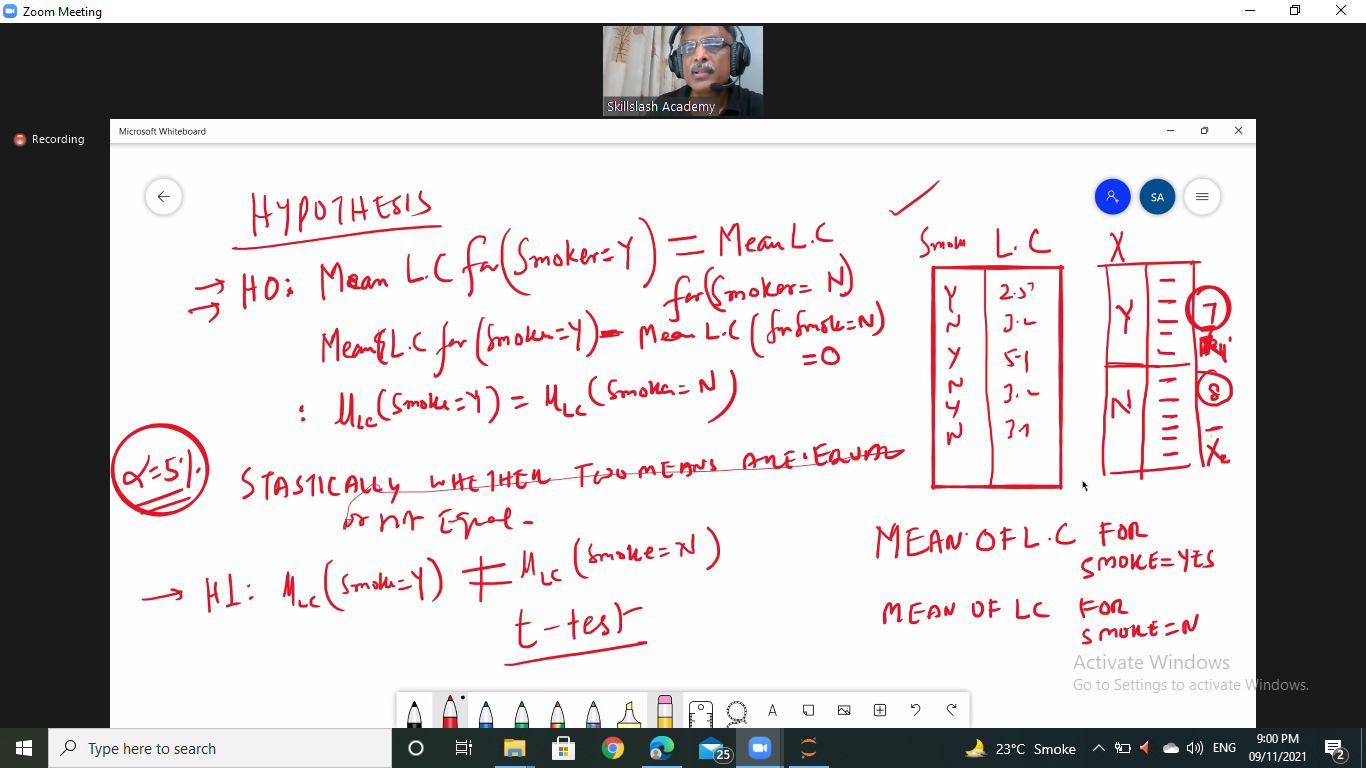 Zoom Meeting
Skillslash Academy
Recording
Microsoft Whiteboard
SA
HYPOTHESIS
H0: Mean L.C for (Smoker=Y) = Mean L.C
for (Smoker= N)
Mean L.C for (Smoker=Y) - Mean L.C ( for Smoke=N)
=0
: μLC (Smoke=Y) = μLC (Smoker= N)
α=5%.
STASTICALLY WHETHER TWO MEANS ARE EQUAL
or not Equal -
H1: μLC (Smoke=Y) ≠ μLC (Smoke=N)
t-test
Smoke L.C X
Y 2.5
N 3.2
Y 5.1
N 3.2
Y
N 3.1
Y 7
N 8
X2
MEAN OF L.C FOR
SMOKE=YES
MEAN OF LC FOR
SMOKE=N
Activate Windows
Go to Settings to activate Windows.
A
Type here to search
25
23°C Smoke
ENG
9:00 PM
09/11/2021
2